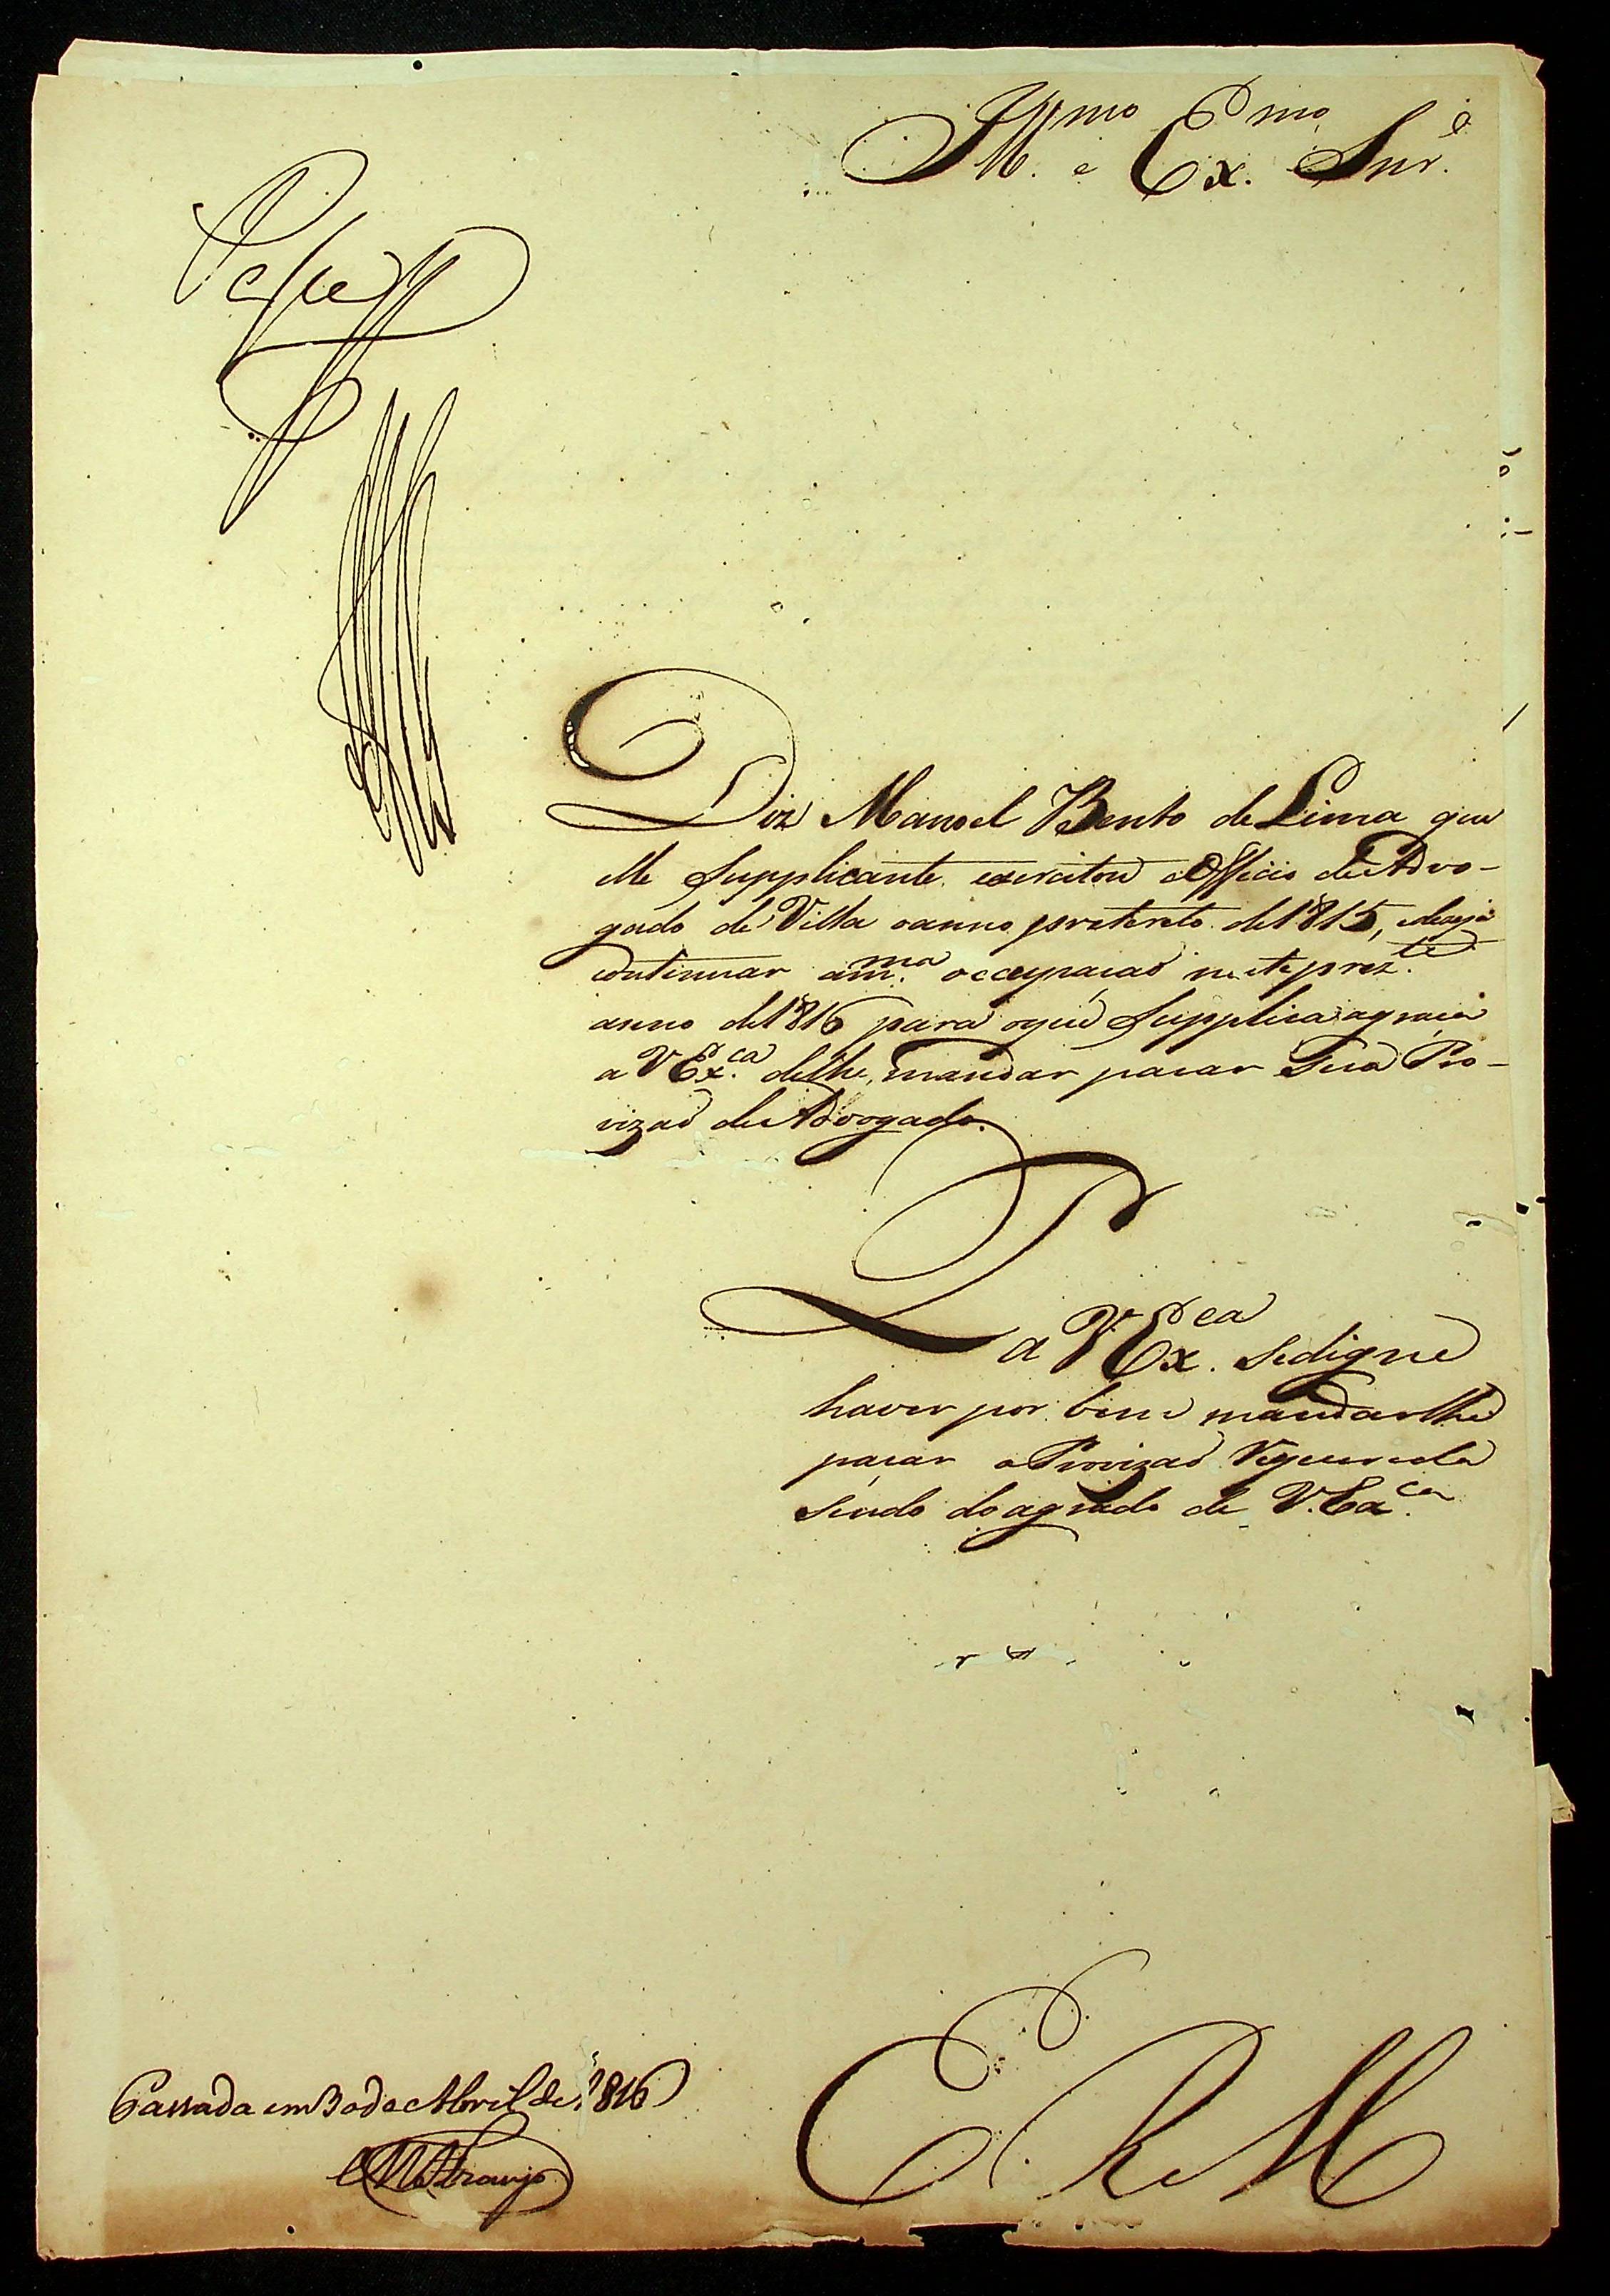 Ill.mo e Ex.mo Snr.e
Passe
Diz Manoel Bento de Lima que
elle Supplicante exercitou o Officio de Advo-
gado de Villa o anno preterito de 1815, e deseja
continuar a m.ma occupacaõ neste prez.te
anno de 1816 para o que Supplica a graça
a V Ex.ca de lhe mandar paçar Sua Pro-
vizaõ de Advogado.
P a V Ex.ca se digne
haver por bem mandar lhe
paçar a Provizaõ Requerida
sendo do agrado de V. Exa.ca
E R M
Passada em 30 de Abril de 1816
Araujo